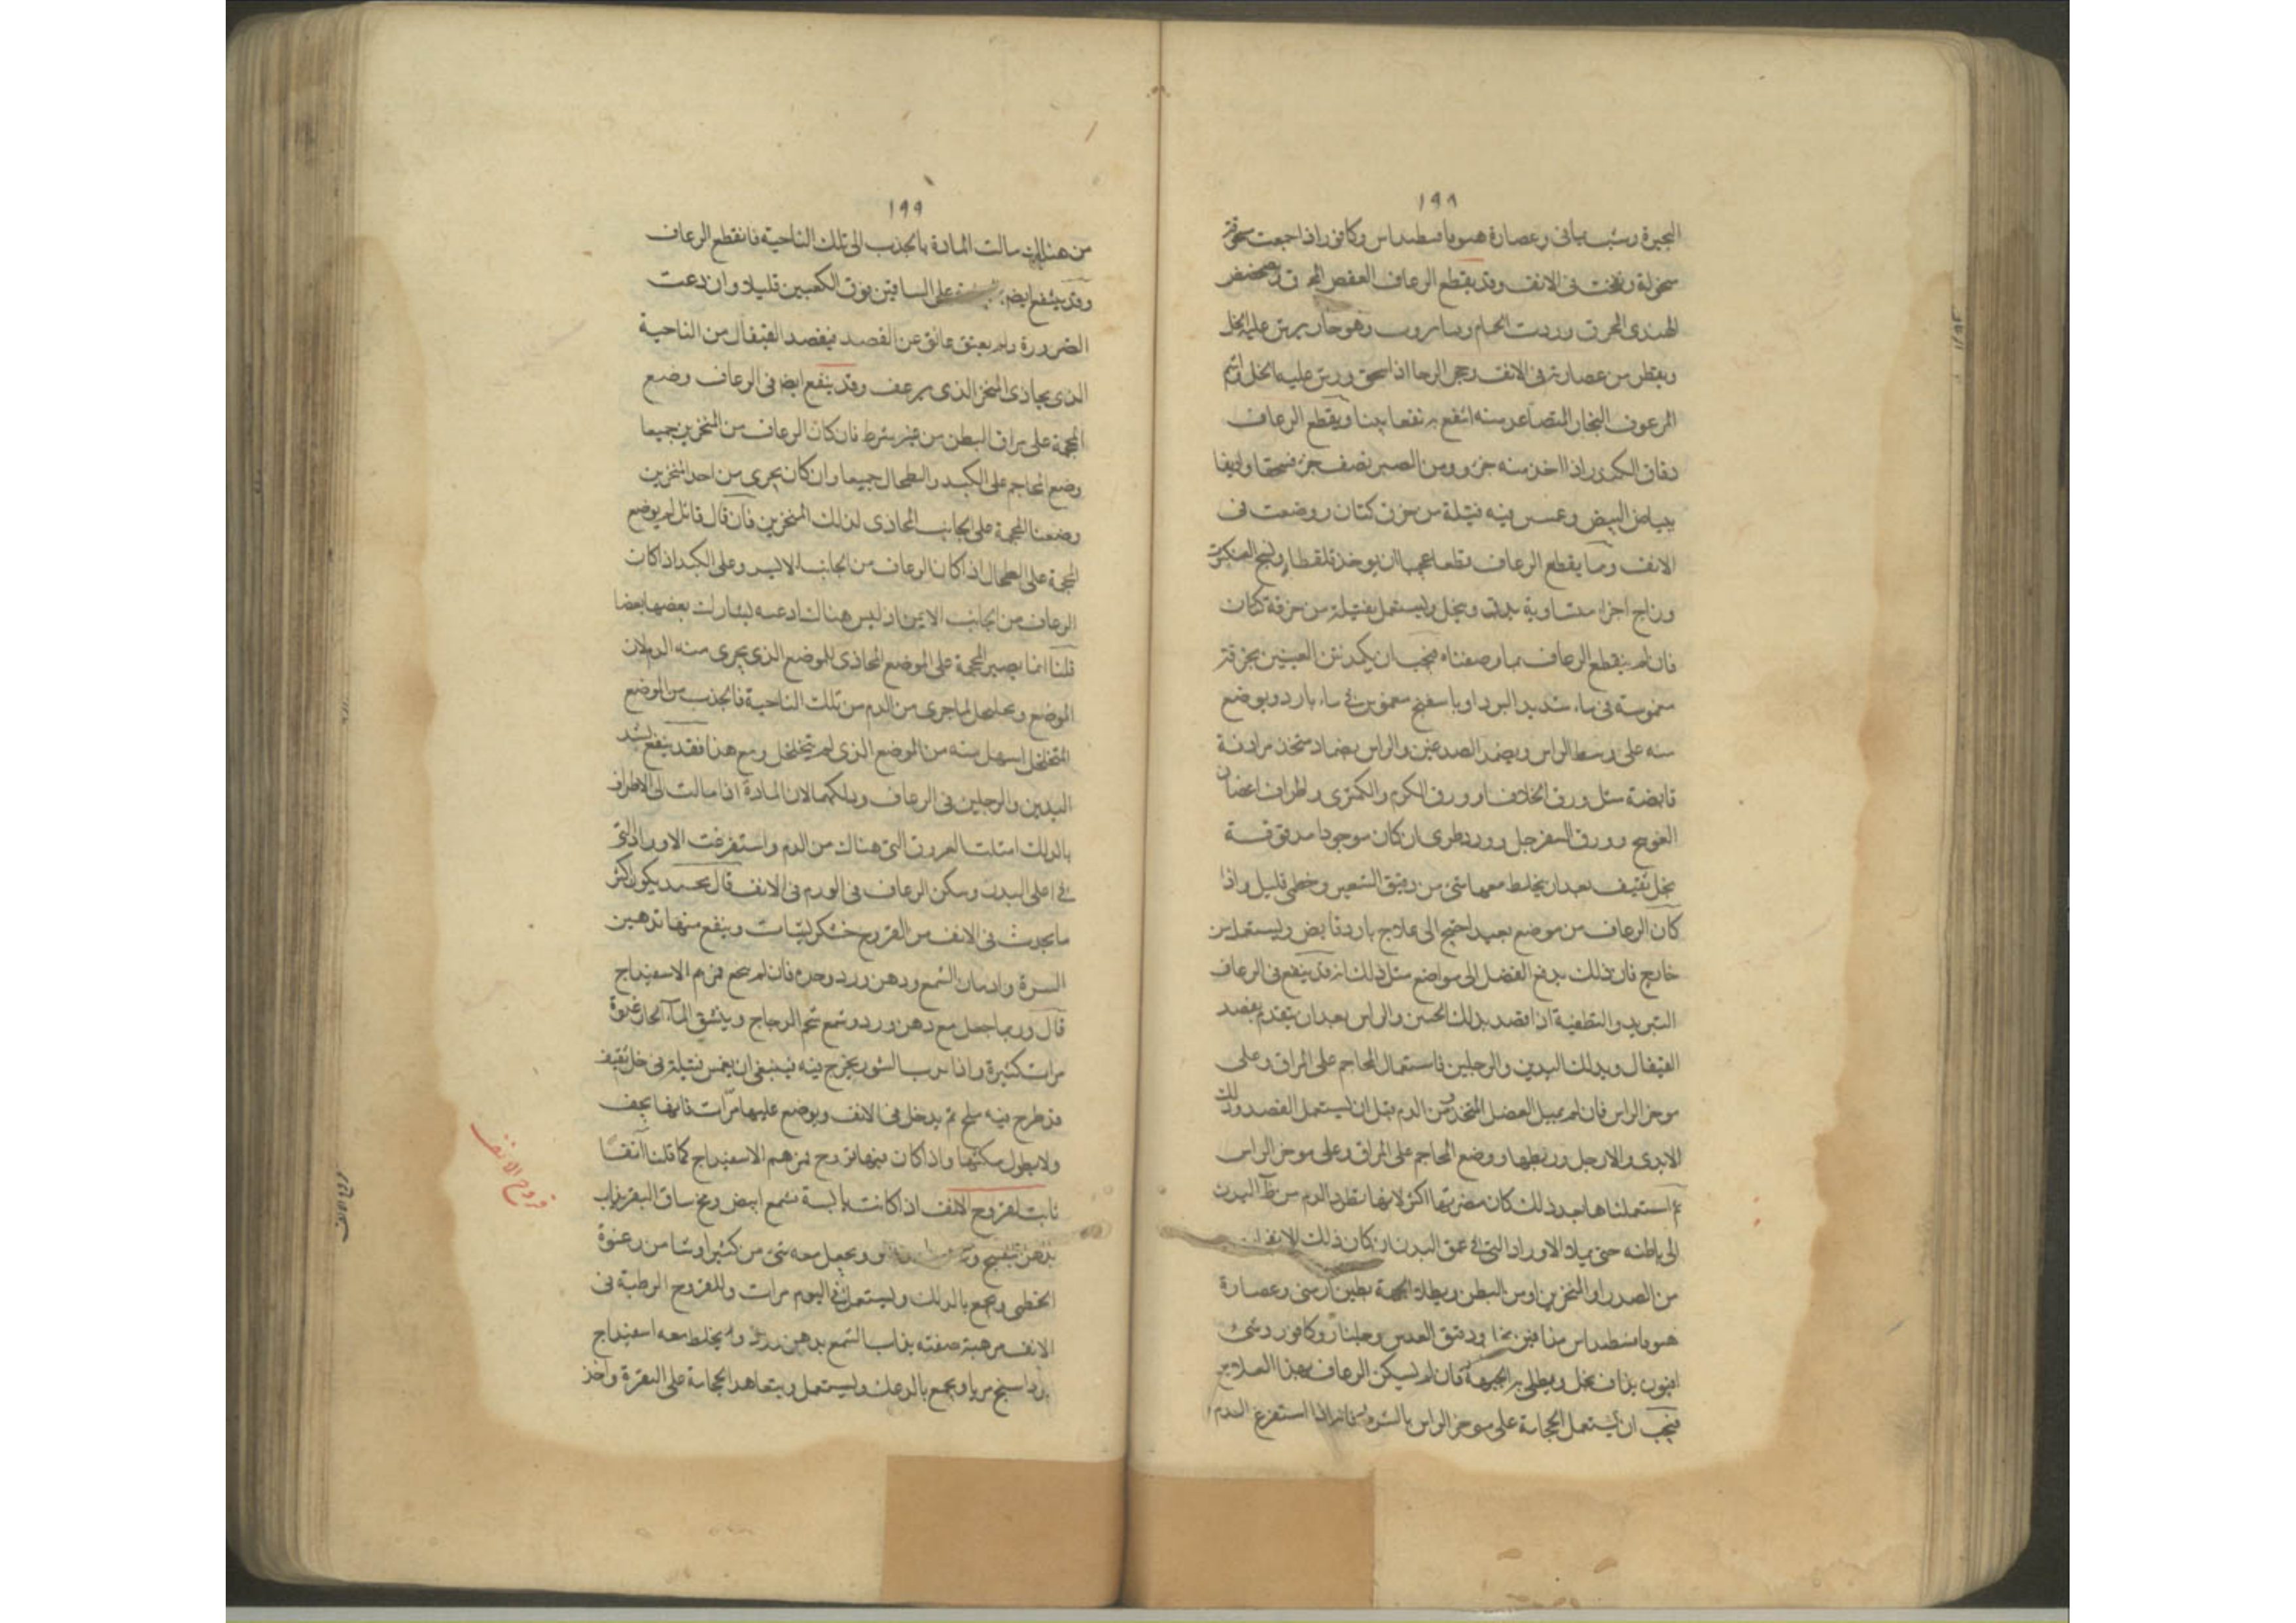 ١٩٨
البحيرة وشب يماني وعصارة هيوفاقسطيداس وكافور اذا جمعت مسحوقة
منخولة ونفخت في الانف وقد يقطع الرعاف العفص المحرق
الهندى المحرق وردت الحمام وهو حار يرش عليه الخل
ويقطر من عصارته في الانف وحجر الرحا اذا سحق ورش عليه الخل
المرعوف البخار المتصاعد منه انتفع به نفعا بينا ويقطع الرعاف
دقاق الكندر اذا اخذ منه جزو ومن الصبر نصف جزو فسحقا واديفا
ببياض البيض وغمس فيه فتيلة من كتان ووضعت في
الانف ومما يقطع الرعاف قطعا عجيبا ان يوخذ قلقطار ونسج العنكبوت
وزاج اجزاء متساوية يدق وينخل ويستعمل بفتيلة من خرقة كتان
فان لم ينقطع الرعاف بما وصفناه فيجب ان يكمد بين العينين بخرقة
مغموسة في ماء شديد البرد او باسفنج مغموس في ماء بارد ويوضع
منه على وسط الراس ويضمد الصدغين والراس بضماد متخذ من ادوية
قابضة مثل ورق الخلاف او ورق الكرم والكمثرى واطراف اغصان
العوسج وورق السفرجل وورد طرى ان كان موجودا مدقوقة
بخل ثقيف بعد ان يخلط معها شى من دقيق الشعير وخطمى قليل واذا
كان الرعاف من موضع بعيد احتيج الى علاج بارد قابض ويستعمل من
خارج فان ذلك يدفع الفضل الى مواضع مثل ذلك انه قد ينفع في الرعاف
التبريد والتطفية اذا قصد بذلك الجبين والراس بعد ان يتقدم بفصد
القيفال وبدلك اليدين والرجلين فاستعمال المحاجم على المراق وعلى
موخر الراس فان لم يميل الفضل المتخذ من الدم قبل ان يستعمل الفصد ودلك
الايدى والارجل وربطها ووضع المحاجم على المراق وعلى موخر الراس
ثم استعملناها بعد ذلك كان مضرتها اكثر لانها تطرد الدم من ظاهر البدن
الى باطنه حتى يملا الاوراد التي في عمق البدن ان كان ذلك الانفجار
من الصدر او المنخرين او من البطن ويطلى الجبهة بطين ارمنى وعصارة
هيوفاقسطيداس مذافين بخل ودقيق العدس وجلنار وكافور وشى
افيون يذاف بخل ويطلى به الجبهة فان لم يسكن الرعاف بهذا العلاج
فيجب ان يستعمل الحجامة على موخر الراس بالشرط فانه اذا استفرغ الدم
١٩٩
من هنالك سالت المادة بالجذب الى تلك الناحية فانقطع الرعاف
وقد ينتفع ايضا على الساقين فوق الكعبين قليلا وان دعت
الضرورة ولم يعق عائق عن الفصد فيفصد القيفال من الناحية
الذى يحاذى المنخر الذى يرعف وقد ينفع ايضا في الرعاف وضع
المحجمة على مراق البطن من غير شرط فان كان الرعاف من المنخرين جميعا
وضع المحاجم على الكبد والطحال جميعا وان كان يجرى من احد المنخرين
وضعنا المحجمة على الجانب المحاذى لذلك المنخرين فان قال قائل لم يوضع
المحجمة على الطحال اذا كان الرعاف من الجانب الايسر وعلى الكبد اذا كان
الرعاف من الجانب الايمن اذ ليس هناك اوعيه ليشارك بعضها بعضا
قلنا انما يصير المحجمة على الموضع المحاذى للموضع الذى يجرى منه الدم لان
الموضع وتخلخل لما جرى من الدم من تلك الناحية فالجذب من الموضع
المتخلخل اسهل منه من الموضع الذى لم يتخلخل ومع هذا فقد ينفع شد
اليدين والرجلين في الرعاف ودلكهما لان المادة اذا مالت الى الاطراف
بالدلك امتلت العروق التي هناك من الدم واستفرغت الاوراد التي
في اعلى البدن وسكن الرعاف في الورم في الانف قال محمد يكون اكثر
ما يحدث في الانف من القروح خشكريشات وينفع منها تدهين
السرة وادمان الشمع ودهن ورد وحده فان لم ينجع فمرهم الاسفيداج
قال وربما جعل مع دهن ورد وشمع شحم الدجاج وينشق الماء الحار غدوة
مرات كثيرة واذا يخرج فيه فينبغى ان يغمس فتيلة في خل ثقيف
قد طرح فيه ملح ثم يدخل في الانف ويوضع عليها مرات فانها يجف
ولا يطول مكثها واذا كان فيها قروح فمرهم الاسفيداج كما قلنا آنفا
ثابت لقروح الانف اذا كانت يابسة شمع ابيض ومخ ساق البقر يذاب
بدهن بنفسج ويجعل معه شى من كثيرا وشا من رغوة
الخطمى ويجمع بالدلك ويستعمل في اليوم مرات وللقروح الرطبة في
الانف مرهم صفته يذاب الشمع بدهن ورد ويخلط معه اسفيداج
ومرداسنج مربا ويجمع بالدعك ويستعمل ويتعاهد الحجامة على النقرة واخذ
قروح الانف